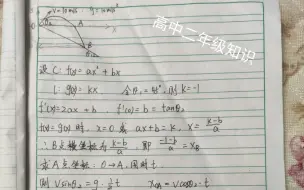 V=10m/s g=10m/s²
A
B
高中二年级知识
设 C: f(x) = ax² + bx
l: g(x) = kx. 令θ₁=45°, 则 k=-1
f'(x)=2ax+b f'(0)=b=tanθ₂
f(x)=g(x) 时, x=0 或 ax+b=k, x=(k-b)/a
∴B点横坐标为 (k-b)/a, 即 (-1-b)/a = x_B
求A点坐标: O→A, 用时t.
则 Vsinθ₂=g·½t x_OA=Vcosθ₂·t